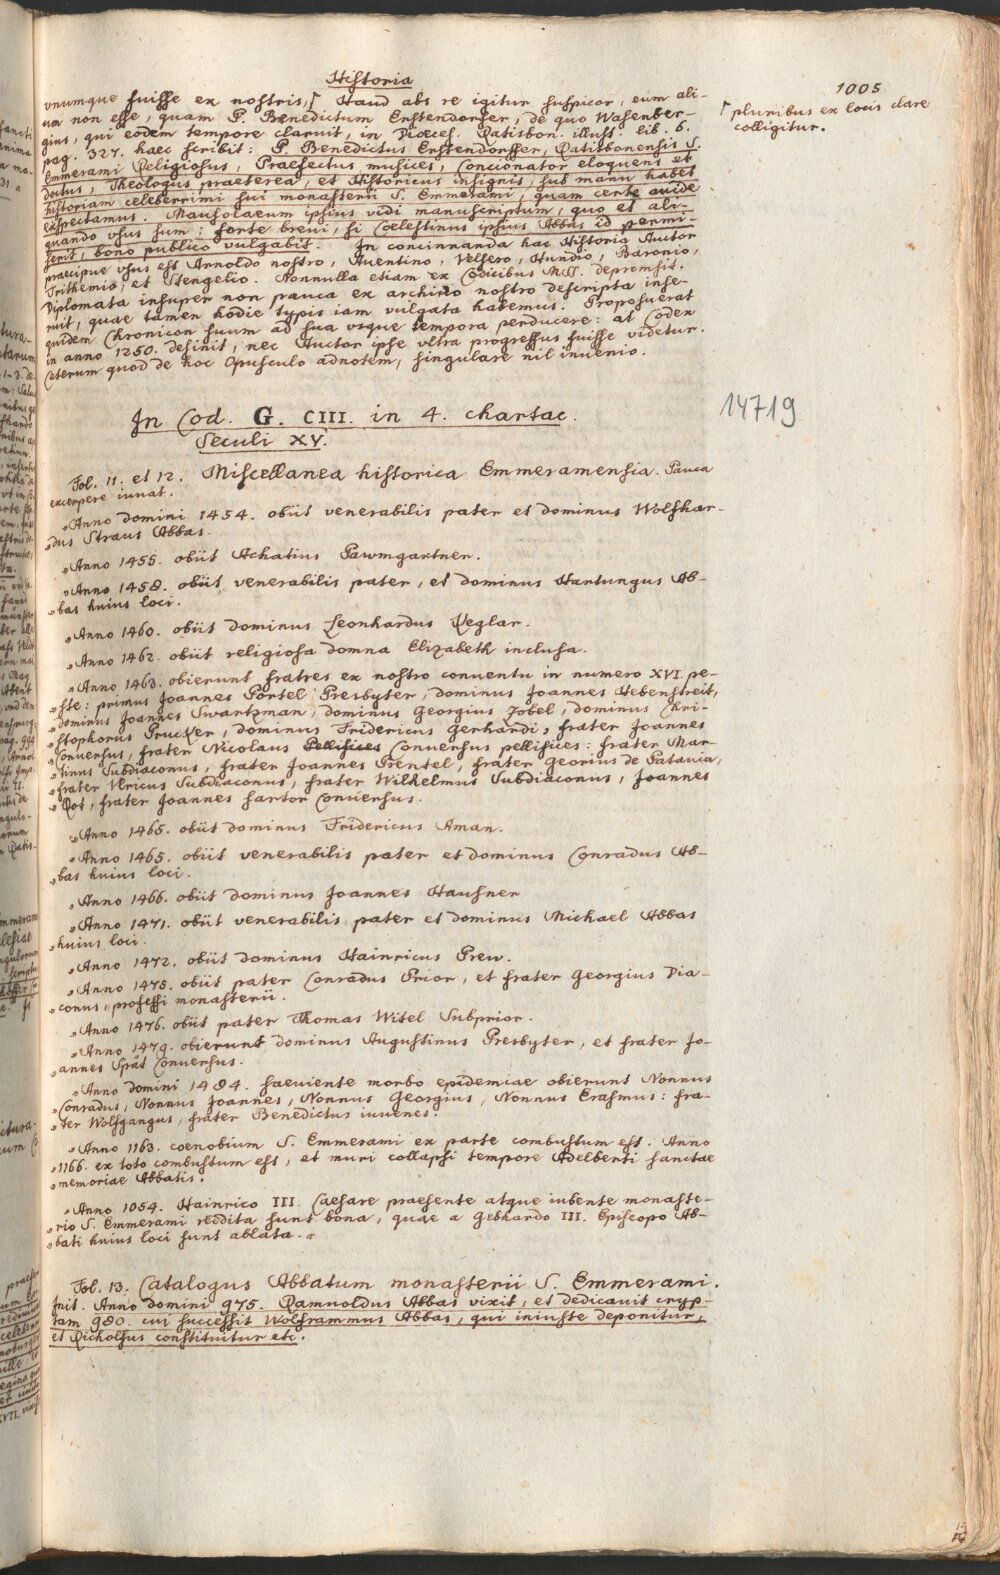 Historia
1005
vnumque fuisse ex nostris,⌈ Haud abs re igitur suspicor, eum ali-
⌈ pluribus ex locis clare
colligitur.
um non esse, quam P. Benedictum Enstendorfer, de quo Wasenber-
gius, qui eodem tempore claruit, in Dioeces. Ratisbon. illust. lib. 6.
pag. 327. haec scribit: P. Benedictus Enstendorffer, Ratisbonensis S.
Emmerami Religiosus, Praefectus musices, Concionator eloquens et
doctus, Theologus praeterea, et Historicus insignis, sub manu habet
historiam celeberrimi sui monasterii S. Emmerami, quam certe auide
exspectamus. Mausolaeum ipsius vidi manuscriptum, quo et ali-
quando vsus sum: forte breui, si Coelestinus ipsius Abbas id permi-
serit, bono publico vulgabit. In concinnanda hac Historia Auctor
praecipue vsus est Arnoldo nostro, Auentino, Velsero, Hundio, Baronio,
Trithemio, et Stengelio. Nonnulla etiam ex Codicibus MSS. depromsit.
Diplomata insuper non pauca ex archiuo nostro descripta inse-
ruit, quae tamen hodie typis iam vulgata habemus. Proposuerat
quidem Chronicon suum ad sua vsque tempora perducere: at Codex
in anno 1250. desinit, nec Auctor ipse vltra progressus fuisse videtur.
Ceterum quod de hoc Opusculo adnotem, singulare nil inuenio.
In Cod. G. CIII. in 4. chartac.
14719
Seculi XV.
Fol. 11. et 12. Miscellanea historica Emmeramensia. Pauca
excerpere iuuat.
„Anno domini 1454. obiit venerabilis pater et dominus Wolfhar-
„dus Straus Abbas.
„Anno 1455. obiit Achatius Pawmgartner.
„Anno 1458. obiit venerabilis pater, et dominus Hartungus Ab-
„bas huius loci.
„Anno 1460. obiit dominus Leonhardus Reglar.
„Anno 1462. obiit religiosa domna Elizabeth inclusa.
„Anno 1463. obierunt fratres ex nostro conuentu in numero XVI. pe-
„ste: primus Joannes Pörtel Presbyter, dominus Joannes Hebenstreit,
„dominus Joannes Swartzman, dominus Georgius Zobel, dominus Chri-
„stophorus Prucker, dominus Fridericus Gerhardi, frater Joannes
„Conuersus, frater Nicolaus Pellifices Conuersus pellifices: frater Mar-
„tinus Subdiaconus, frater Joannes Prentel, frater Georius de Patauia,
„frater Vlricus Subdiaconus, frater Wilhelmus Subdiaconus, Joannes
„Rot, frater Joannes sartor Conuersus.
„Anno 1465. obiit dominus Fridericus Aman.
„Anno 1465. obiit venerabilis pater et dominus Conradus Ab-
„bas huius loci.
„Anno 1466. obiit dominus Joannes Hausner
„Anno 1471. obiit venerabilis pater et dominus Michael Abbas
„huius loci.
„Anno 1472. obiit dominus Hainricus Prew.
„Anno 1475. obiit pater Conradus Prior, et frater Georgius Dia-
„conus, professi monasterii.
„Anno 1476. obiit pater Thomas Witel Subprior.
„Anno 1479. obierunt dominus Augustinus Presbyter, et frater Jo-
„annes Spät Conuersus.
„Anno domini 1484. saeuiente morbo epidemiae obierunt Nonnus
„Conradus, Nonnus Joannes, Nonnus Georgius, Nonnus Erasmus: fra-
„ter Wolfgangus, frater Benedictus iuuenes.
„Anno 1163. coenobium S. Emmerami ex parte combustum est. Anno
„1166. ex toto combustum est, et muri collapsi tempore Adelberti sanctae
„memoriae Abbatis.
„Anno 1054. Hainrico III. Caesare praesente atque iubente monaste-
„rio S. Emmerami reddita sunt bona, quae a Gebhardo III. Episcopo Ab-
„bati huius loci sunt ablata.„
Fol. 13. Catalogus Abbatum monasterii S. Emmerami.
Init. Anno domini 975. Ramuoldus Abbas vixit, et dedicauit cryp-
tam 980. cui successit Wolframmus Abbas, qui iniuste deponitur,
et Richolfus constituitur etc.